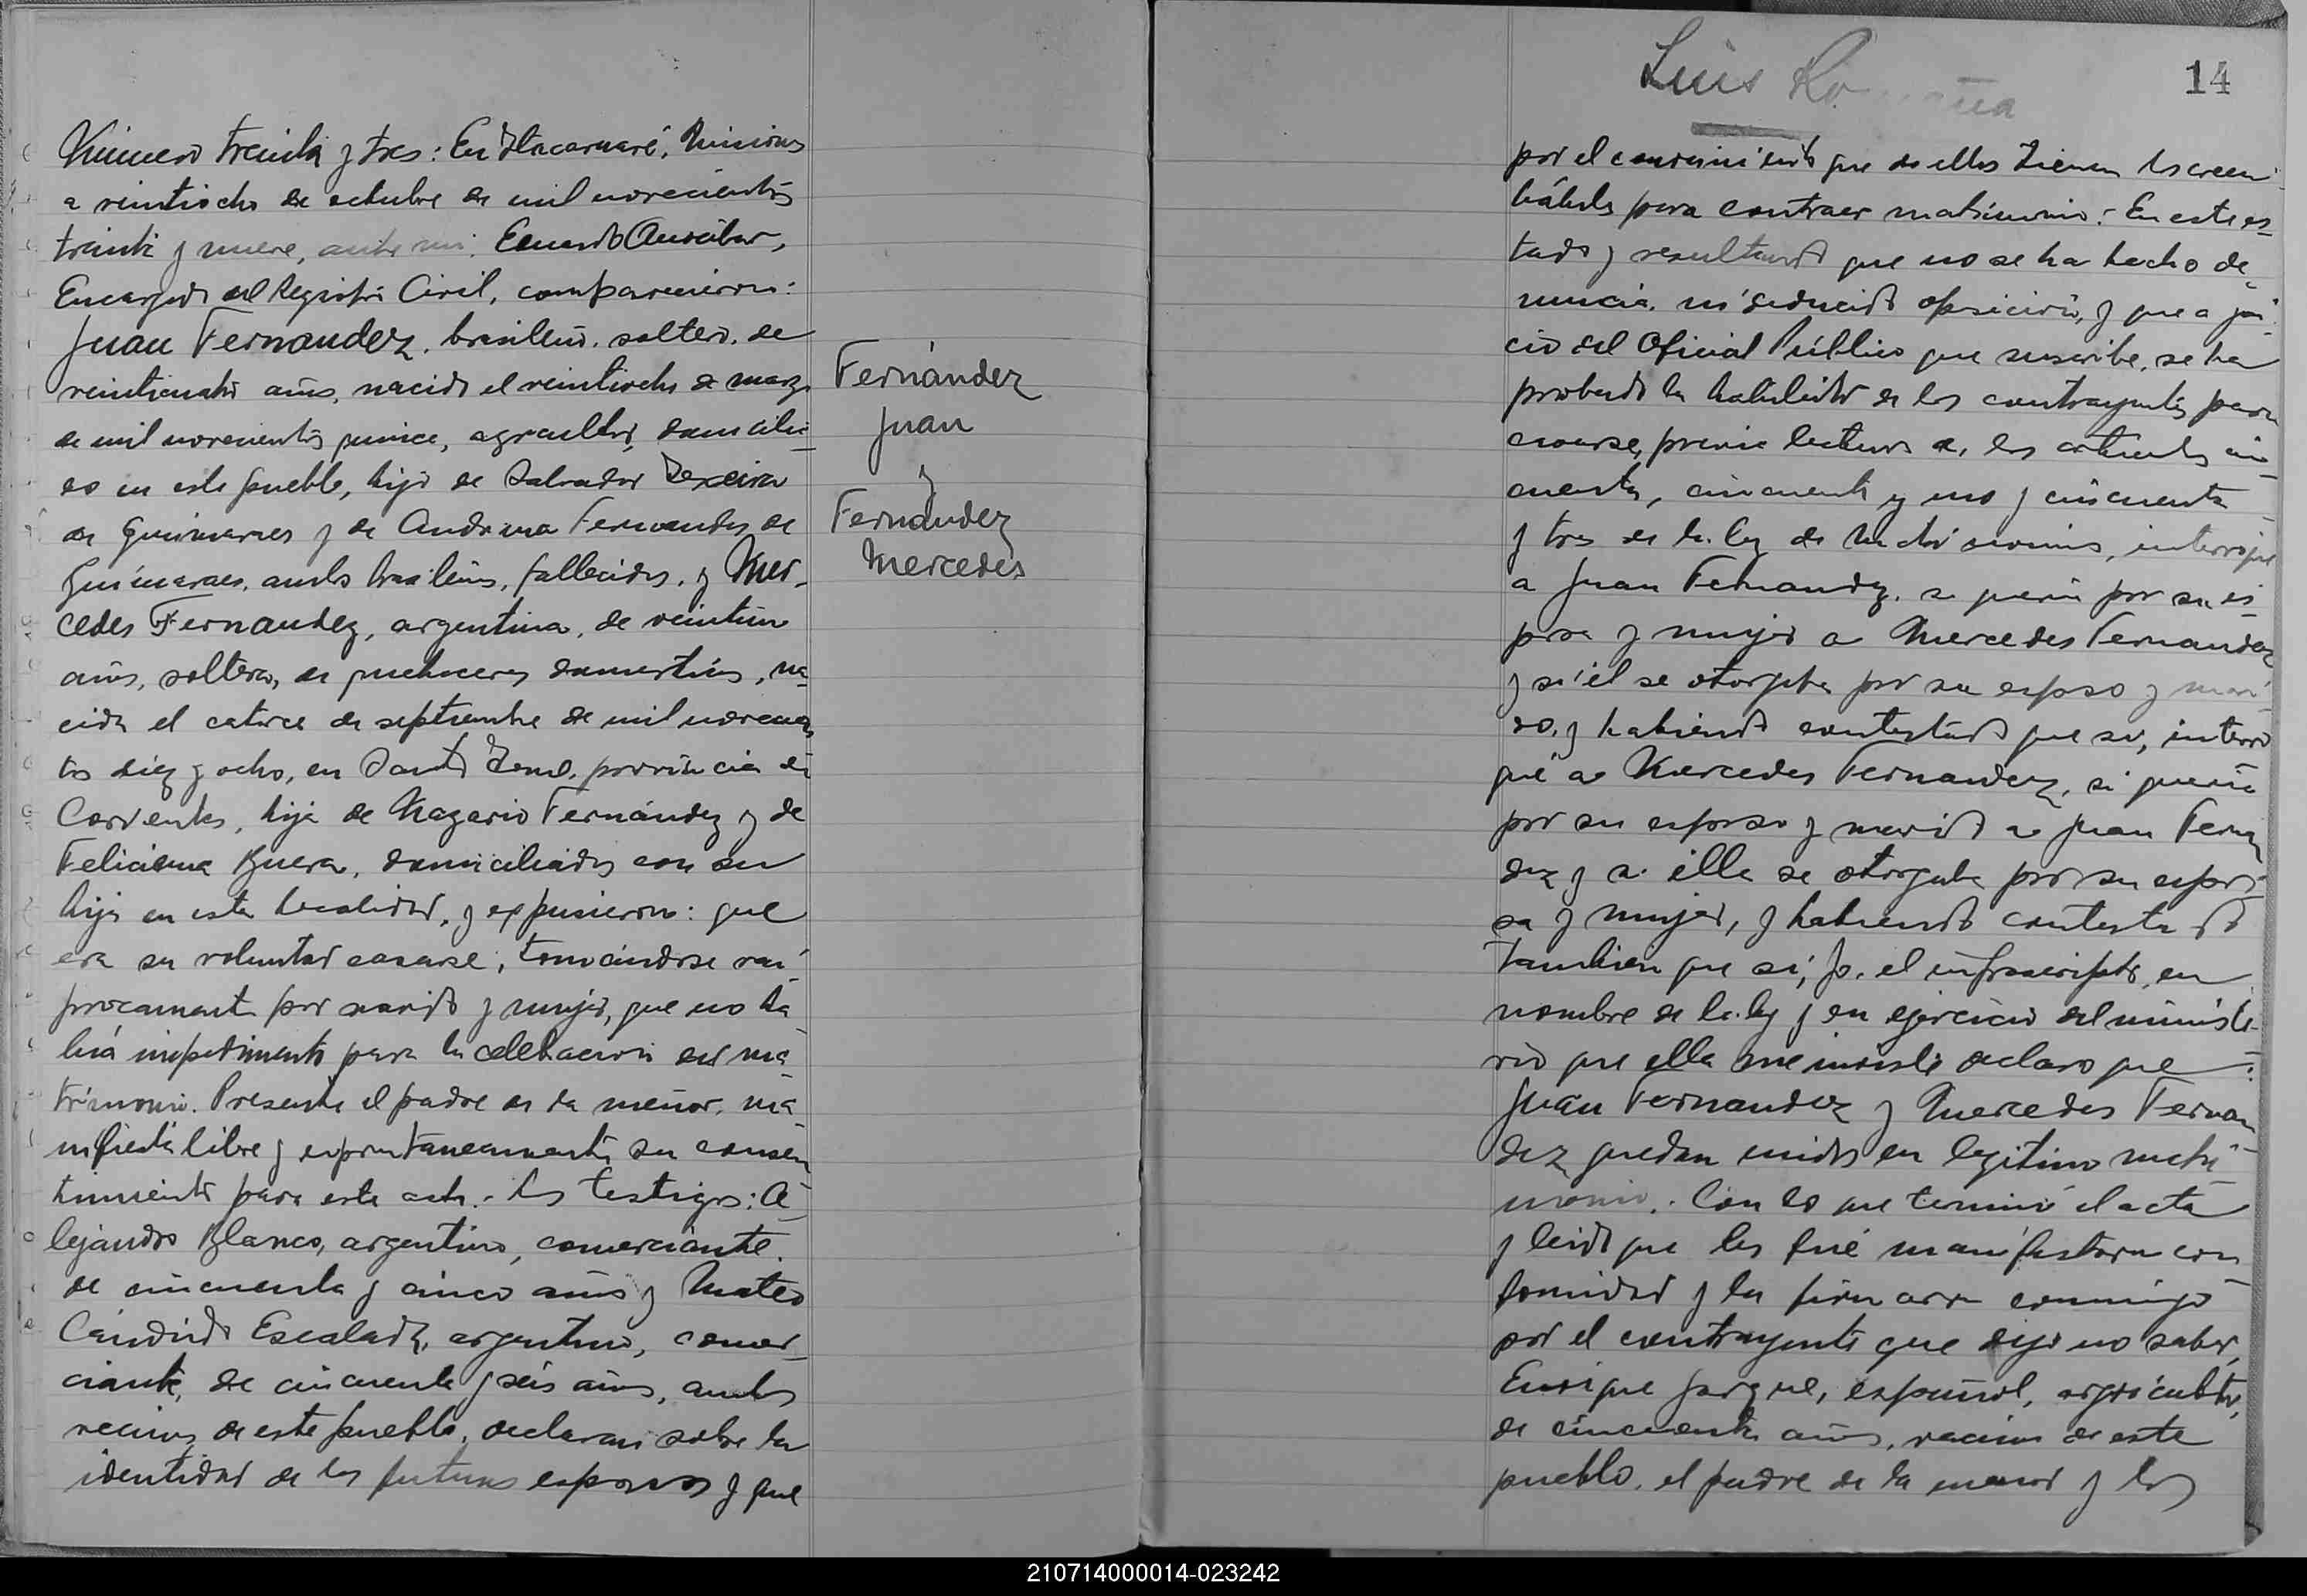 Número treinta y tres: En Itacaruaré, Misiones
a veintiocho de octubre de mil novecientos
treinta y nueve, ante mi: Eduardo
Encargado del Registro Civil, comparecieron:
Juan Fernandez, brasileño, soltero, de
veinticuatro años, nacido el veintiocho de marzo
de mil novecientos quince, agricultor, domicilia-
do en este pueblo, hijo de Salvador Texeira
de Guimaraes y de Fernandes de
Guimaraes, ambos brasileños, fallecidos, y Mer-
cedes Fernandez, argentina, de veintiun
años, soltera, de quehaceres domesticos, na-
cida el catorce de septiembre de mil novecien
tos diez y ocho, en Santo Tomé, provincia de
Corrientes, hija de Nazario Fernández y de
Feliciana Buera, domiciliados con su
hija en esta localidad, y expusieron: que
era su voluntad casarse, tomándose recí-
procamente por marido y mujer, que no ha-
bía impedimento para la celebracion del ma-
trimonio. Presente el padre de la menor, ma-
nifiesta libre y espontaneamente su consen
timiento para este acto. Los testigos: A-
lejandro Blanco, argentino, comerciante,
de cincuenta y cinco años y Mateo
Cándido Escalada, argentino, comer-
ciante, de cincuenta y seis años, ambos
vecinos de este pueblo, declaran sobre la
identidad de los futuros esposos y que
Fernández
Juan
y
Fernández
Mercedes
Luis
14
por el conocimiento que de ellos tienen los creen
hábiles para contraer matrimonio: En este es-
tado y resultando que no se ha hecho de-
nuncia, ni deducido oposición, y que a jui-
cio del Oficial Público que suscribe, se ha
probado la habilidad de los contrayentes para
casarse, previa lectura de los articulos cin-
cuenta, cincuenta y uno y cincuenta
y tres de la ley de Matrimonio, interrogué
a Juan Fernandez, si queria por su es-
posa y mujer a Mercedes Fernandez
y si él se otorgaba por su esposo y mari-
do, y habiendo contestado que si, interro
gué a Mercedes Fernandez, si queria
por su esposo y marido a Juan Fernan
dez y si ella se otorgaba por su espo-
sa y mujer, y habiendo contestado
tambien que si, yo, el infrascripto, en
nombre de la ley y en ejercicio del ministe-
rio que ella me inviste declaro que:
Juan Fernandez y Mercedes Fernan
dez quedan unidos en legitimo matri-
monio. Con lo que terminó el acta
y leido que les fué manifestaron con
formidad y la firmaron conmigo
por el contrayente que dijo no saber,
Enrique español, agricultor,
de cincuenta años, vecino de este
pueblo, el padre de la menor y los
210714000014-023242